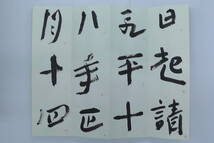 日起請
永平十
八年正
月十四